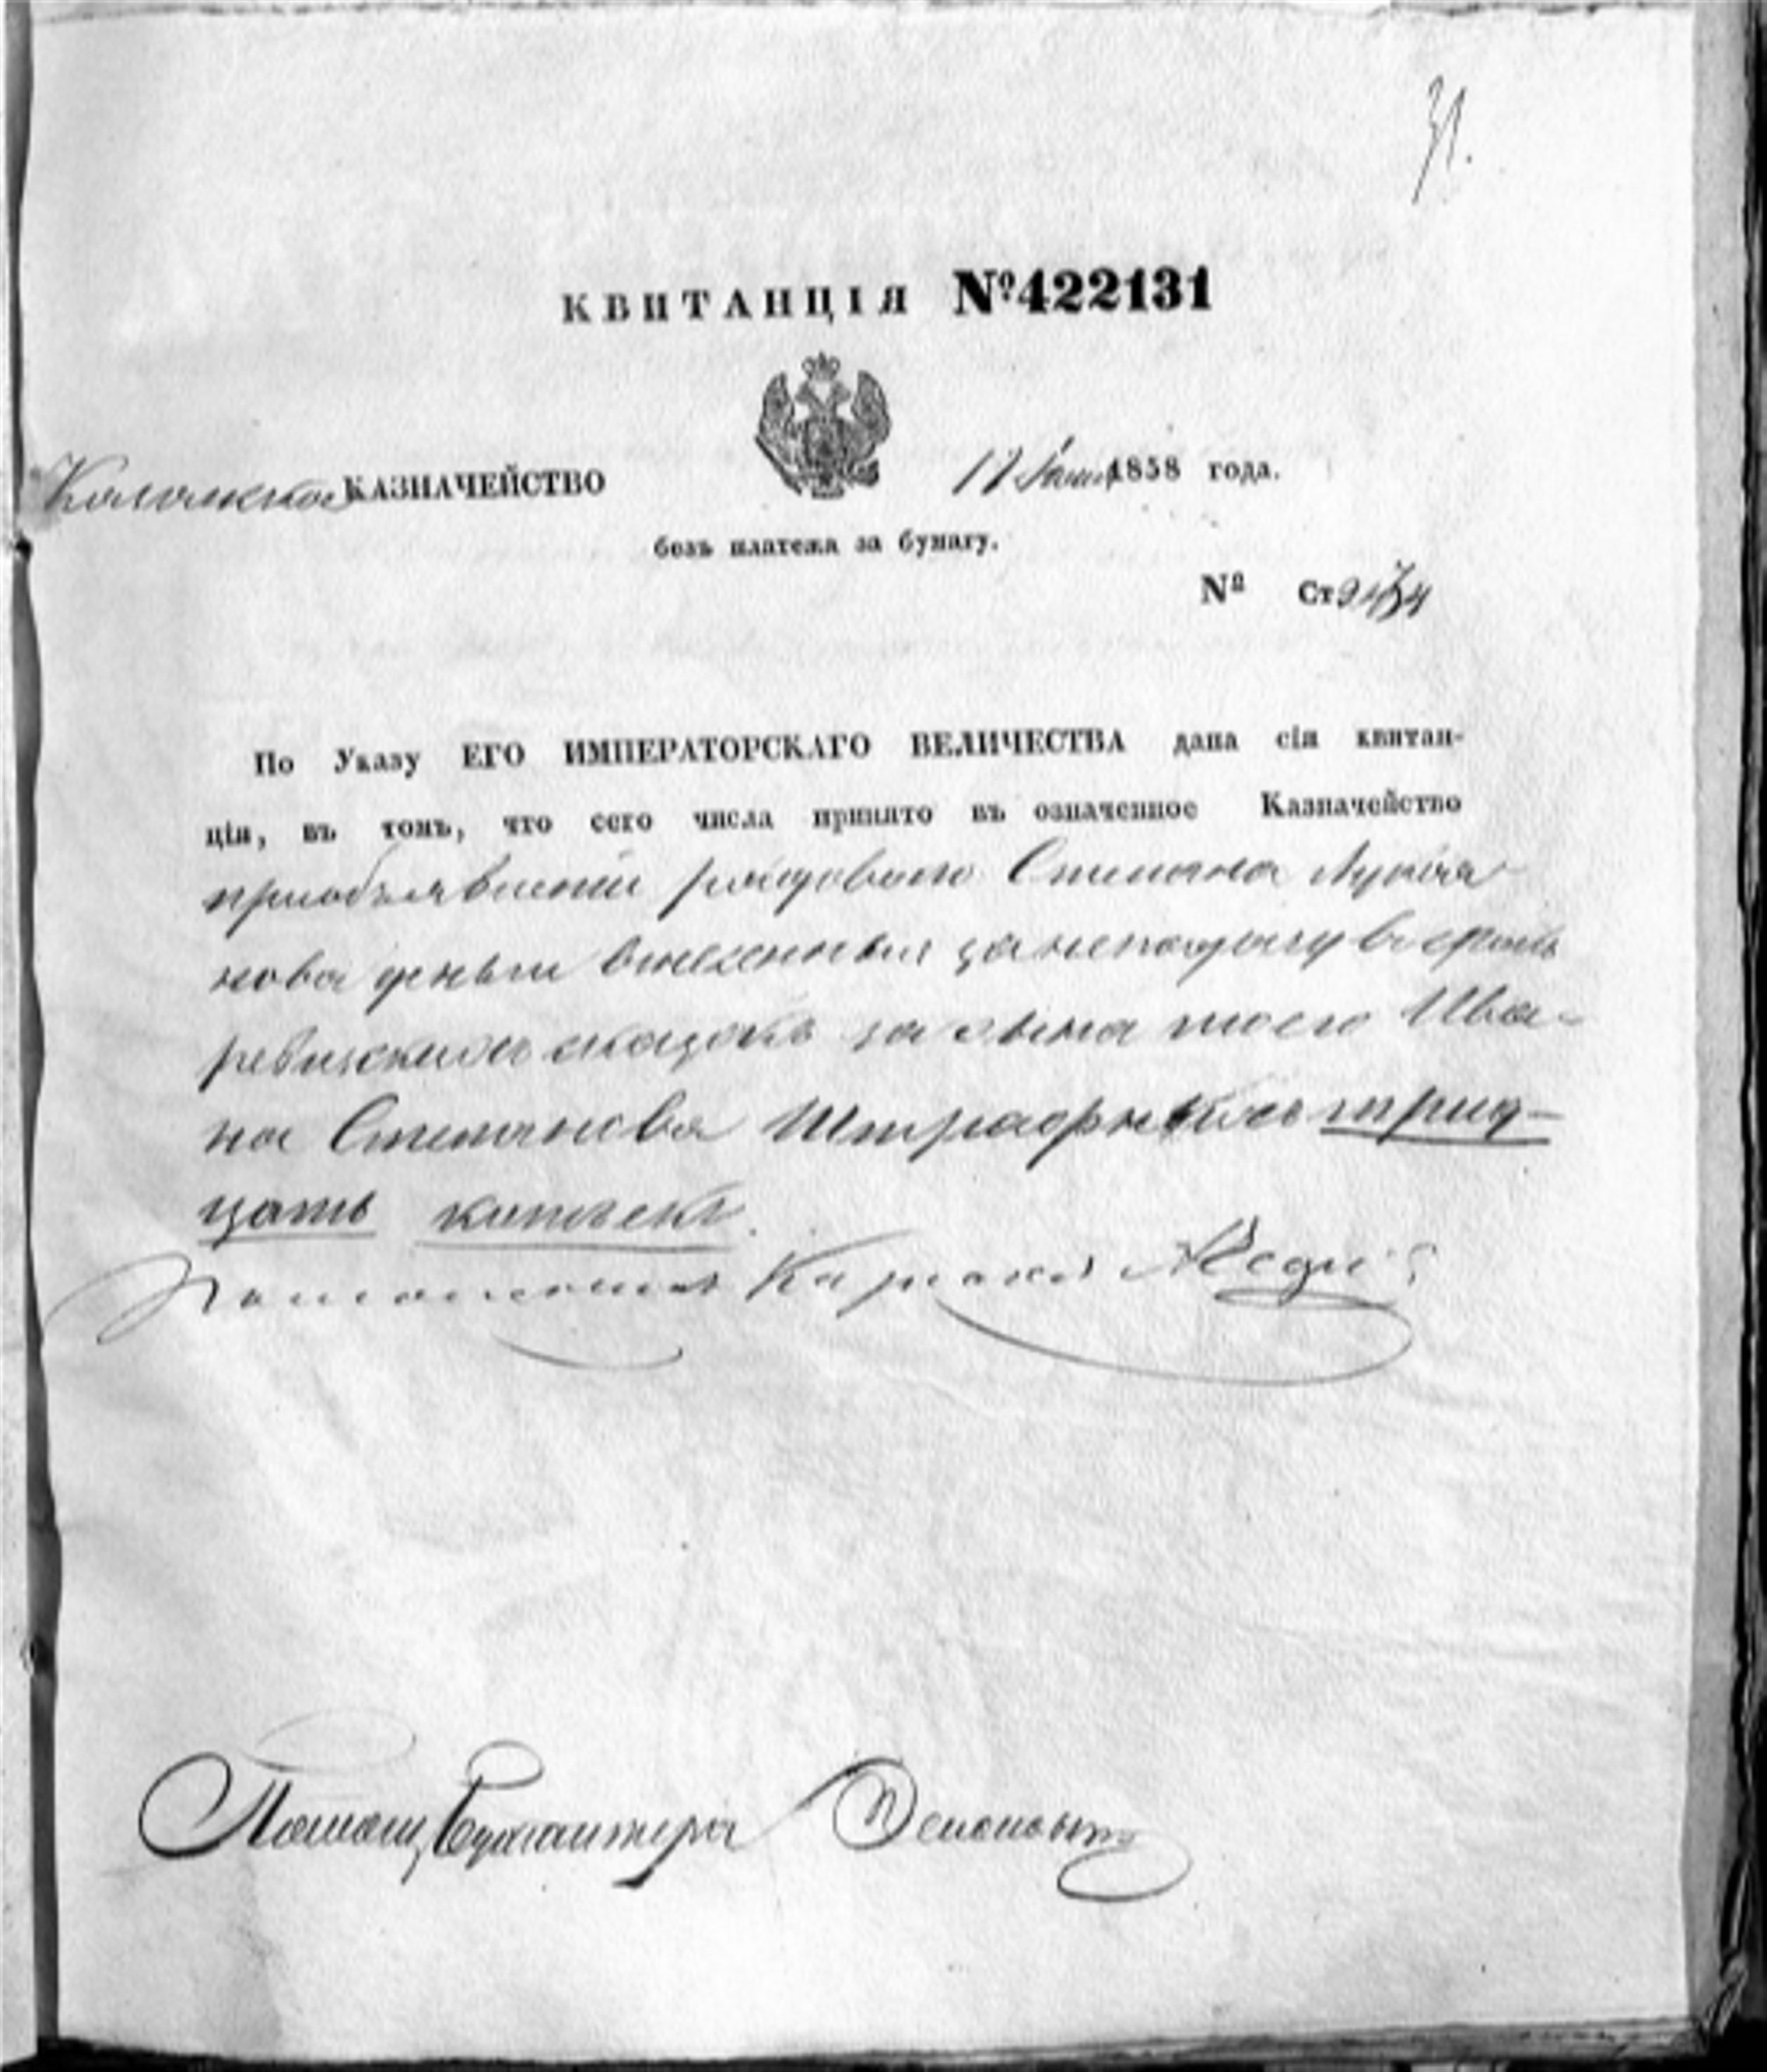 31.
КВИТАНЦІЯ №422131
Коломское КАЗНАЧЕЙСТВО 1858 года.
безъ платежа за бумагу.
№ Ст
По Указу ЕГО ИМПЕРАТОРСКАГО ВЕЛИЧЕСТВА дана сія квитан-
ція, въ томъ, что сего числа принято въ означенное Казначейство
приобъявленіи рядоваго Степана Лукья
нова деньги внесенныя занеподачу в срокъ
ревизскихъ сказокъ за сына моего Ива-
на Степанова Штрафныхъ трид-
цать копѣекъ.
Помощ, Бухгалтера